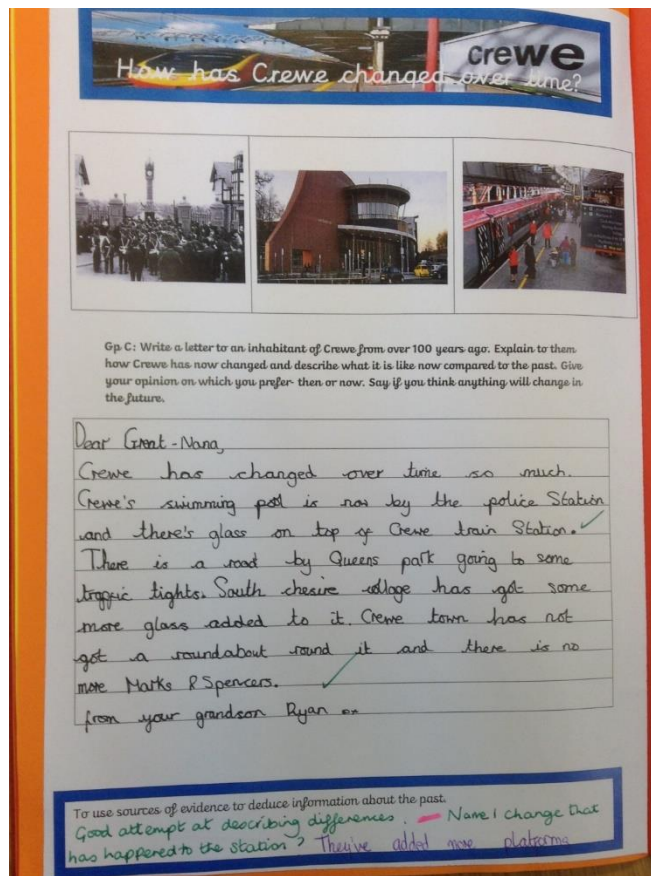 crewe
How has Crewe changed over time?
Gp C: Write a letter to an inhabitant of Crewe from over 100 years ago. Explain to them
how Crewe has now changed and describe what it is like now compared to the past. Give
your opinion on which you prefer- then or now. Say if you think anything will change in
the future.
Dear Great-Nana,
Crewe has changed over time so much.
Crewe's swimming pool is now by the police Station
and there's glass on top of Crewe train Station.
There is a road by Queens park going to some
traffic lights. South chesire collage has got some
more glass added to it. Crewe town has not
got a roundabout round it and there is no
more Marks & Spencers.
from your grandson Ryan
To use sources of evidence to deduce information about the past.
Good attempt at describing differences. Name 1 change that
has happened to the station? They've added more platforms